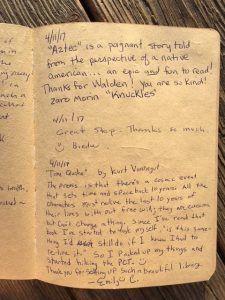 4/11/17
"Aztec" is a poignant story told
from the perspective of a native
american... an epic and fun to read!
Thanks for Walden! You are so kind!
zaro Morin "Knuckles"
4/11/17
Great Stop. Thanks so much.
Birdie
4/11/17
"Time Quake" by Kurt Vonnegut
The premis is that there's a cosmic event
that sets time and space back 10 years. All the
characters must relive the last 10 years of
their lives with out free will; they are conscious
but can't change a thing. Since I've read that
book I've started to ask myself, "is this some-
thing I'd still do if I knew I had to
re-live it". So I packed up my things and
started hiking the PCT.
Thank you for setting up such a beautiful library
~Emily